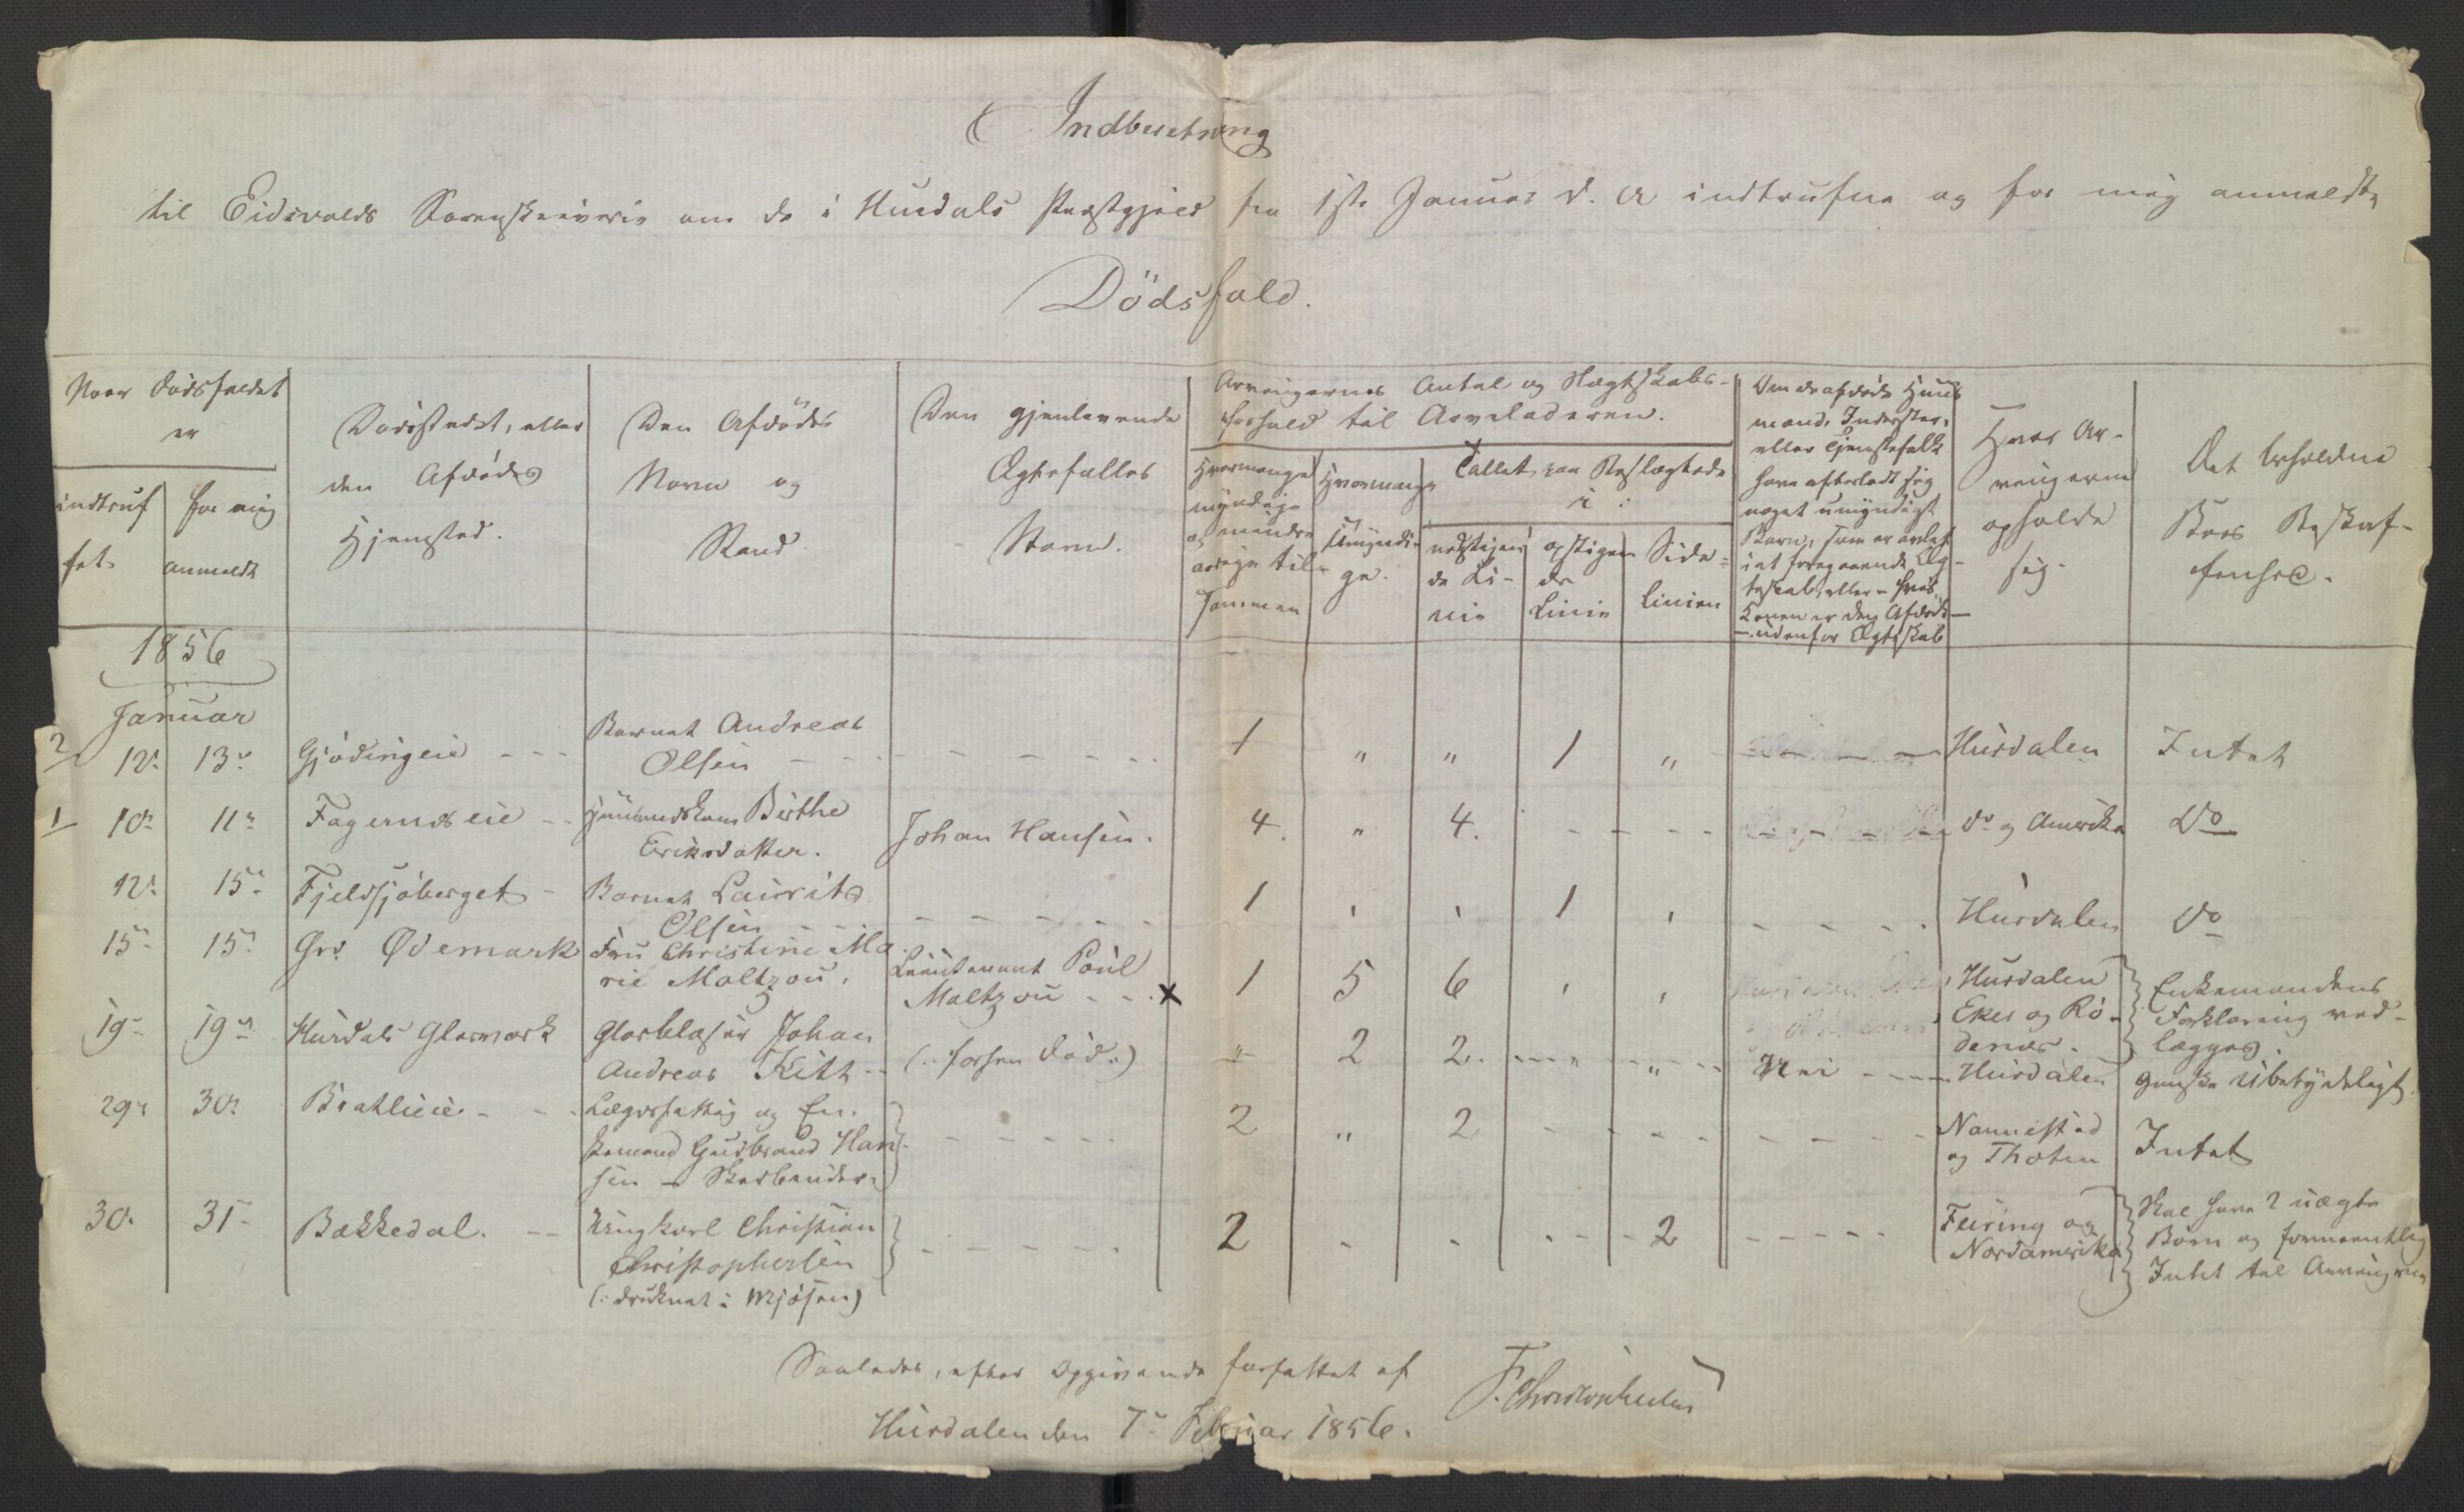 Indberetning
til Eidsvolds Sorenskriverie om de i Hurdals Præstgjeld fra 1ste Januar d. A indtrufne og for mig anmeldte
Dödsfald.
Naar Dødsfaldet
er
indtruf
fet
for mig
anmeldt
Dødsstedet, eller
den Afdødes
Hjemsted.
Den Afdödes
Navn og
Stand
Den gjenlevende
Ægtefælles
Navn.
Arvingernes Antal og Slægtskabs-
forhold til Arveladeren.
Hvormange
myndige
og mindre
aarige til-
sammen
Hvormange
Umyndi-
ge.
Tallet paa Beslægtede
i:
nedstigen
de Li-
nie
opstigen
de
Linie
Side-
Linien
Om de afdøde Huus
mænd, Inderster,
eller Tjenestefolk
have efterladt sig
noget umyndigt
Barn, som er avlet
i et foregaaende Æg-
teskab, eller - hvis
Konen er den Afdøde -
- udenfor Ægteskab
Hvor Ar-
vingerne
opholde
sig.
Det beholdne
Boes Beskaf-
fenhed.
1856
Januar
2 12. 13. Gjødingeie - - - Barnet Andreas
Olsen - - - - - - - - 1 " " 1 " - - - Hurdalen Intet
1 10. 11. Fagernæseie - - Huusmandskone Birthe
Eriksdatter. Johan Hansen. 4. " 4. - - - - - - do og Amerika do
12. 15. Fjeldsjøberget - Barnet Laurits
Olsen - - - - - - 1 ' ' 1 ' - - - - Hurdalen do
15. 15. Grd. Ødemark Fru Christine Ma
rie Moltzou. Lieutenant Poul
Moltzou - - x 1 5 6 ' ' Hurdalen
Eker og Rø-
denæs. Enkemandens
Forklaring ved-
lægges.
19. 19. Hurdals Glasværk Glasblaser Johan
Andreas Kitz - (: forhen død :) " 2 2. - - " - - " - - Nei - - - Hurdalen Ganske Ubetydeligt.
29. 30. Bratlieie - - Lægdsfattig og En-
kemand Gudbrand Han-
sen - Skarbender. - - - - - 2 " 2 - - - - - - - - Nannestad
og Thoten Intet
30. 31. Bækkedal. - - Ungkarl Christian
Christophersen
(: druknet i Mjøsen) - - - - - 2 - - - - - 2 - - - - - Feiring og
Nordamerika Skal have 2 uægte
Børn og formeentlig
Intet til Arvingerne
Saaledes, efter Opgivende forfattet af
Hurdalen den 7. Februar 1856.